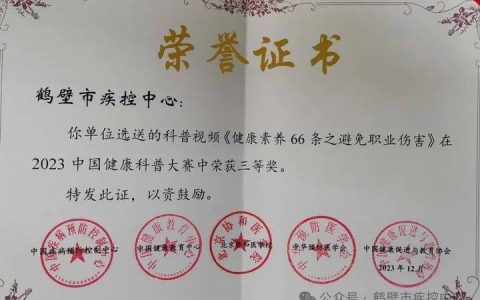 荣誉证书
鹤壁市疾控中心:
你单位选送的科普视频《健康素养66条之避免职业伤害》在
2023中国健康科普大赛中荣获三等奖。
特发此证，以资鼓励。
中国疾病预防控制中心 中国健康教育中心 北京协和医学院 中华预防医学会 中国健康促进与教育协会
2023年12月
公众号·鹤壁市疾控中